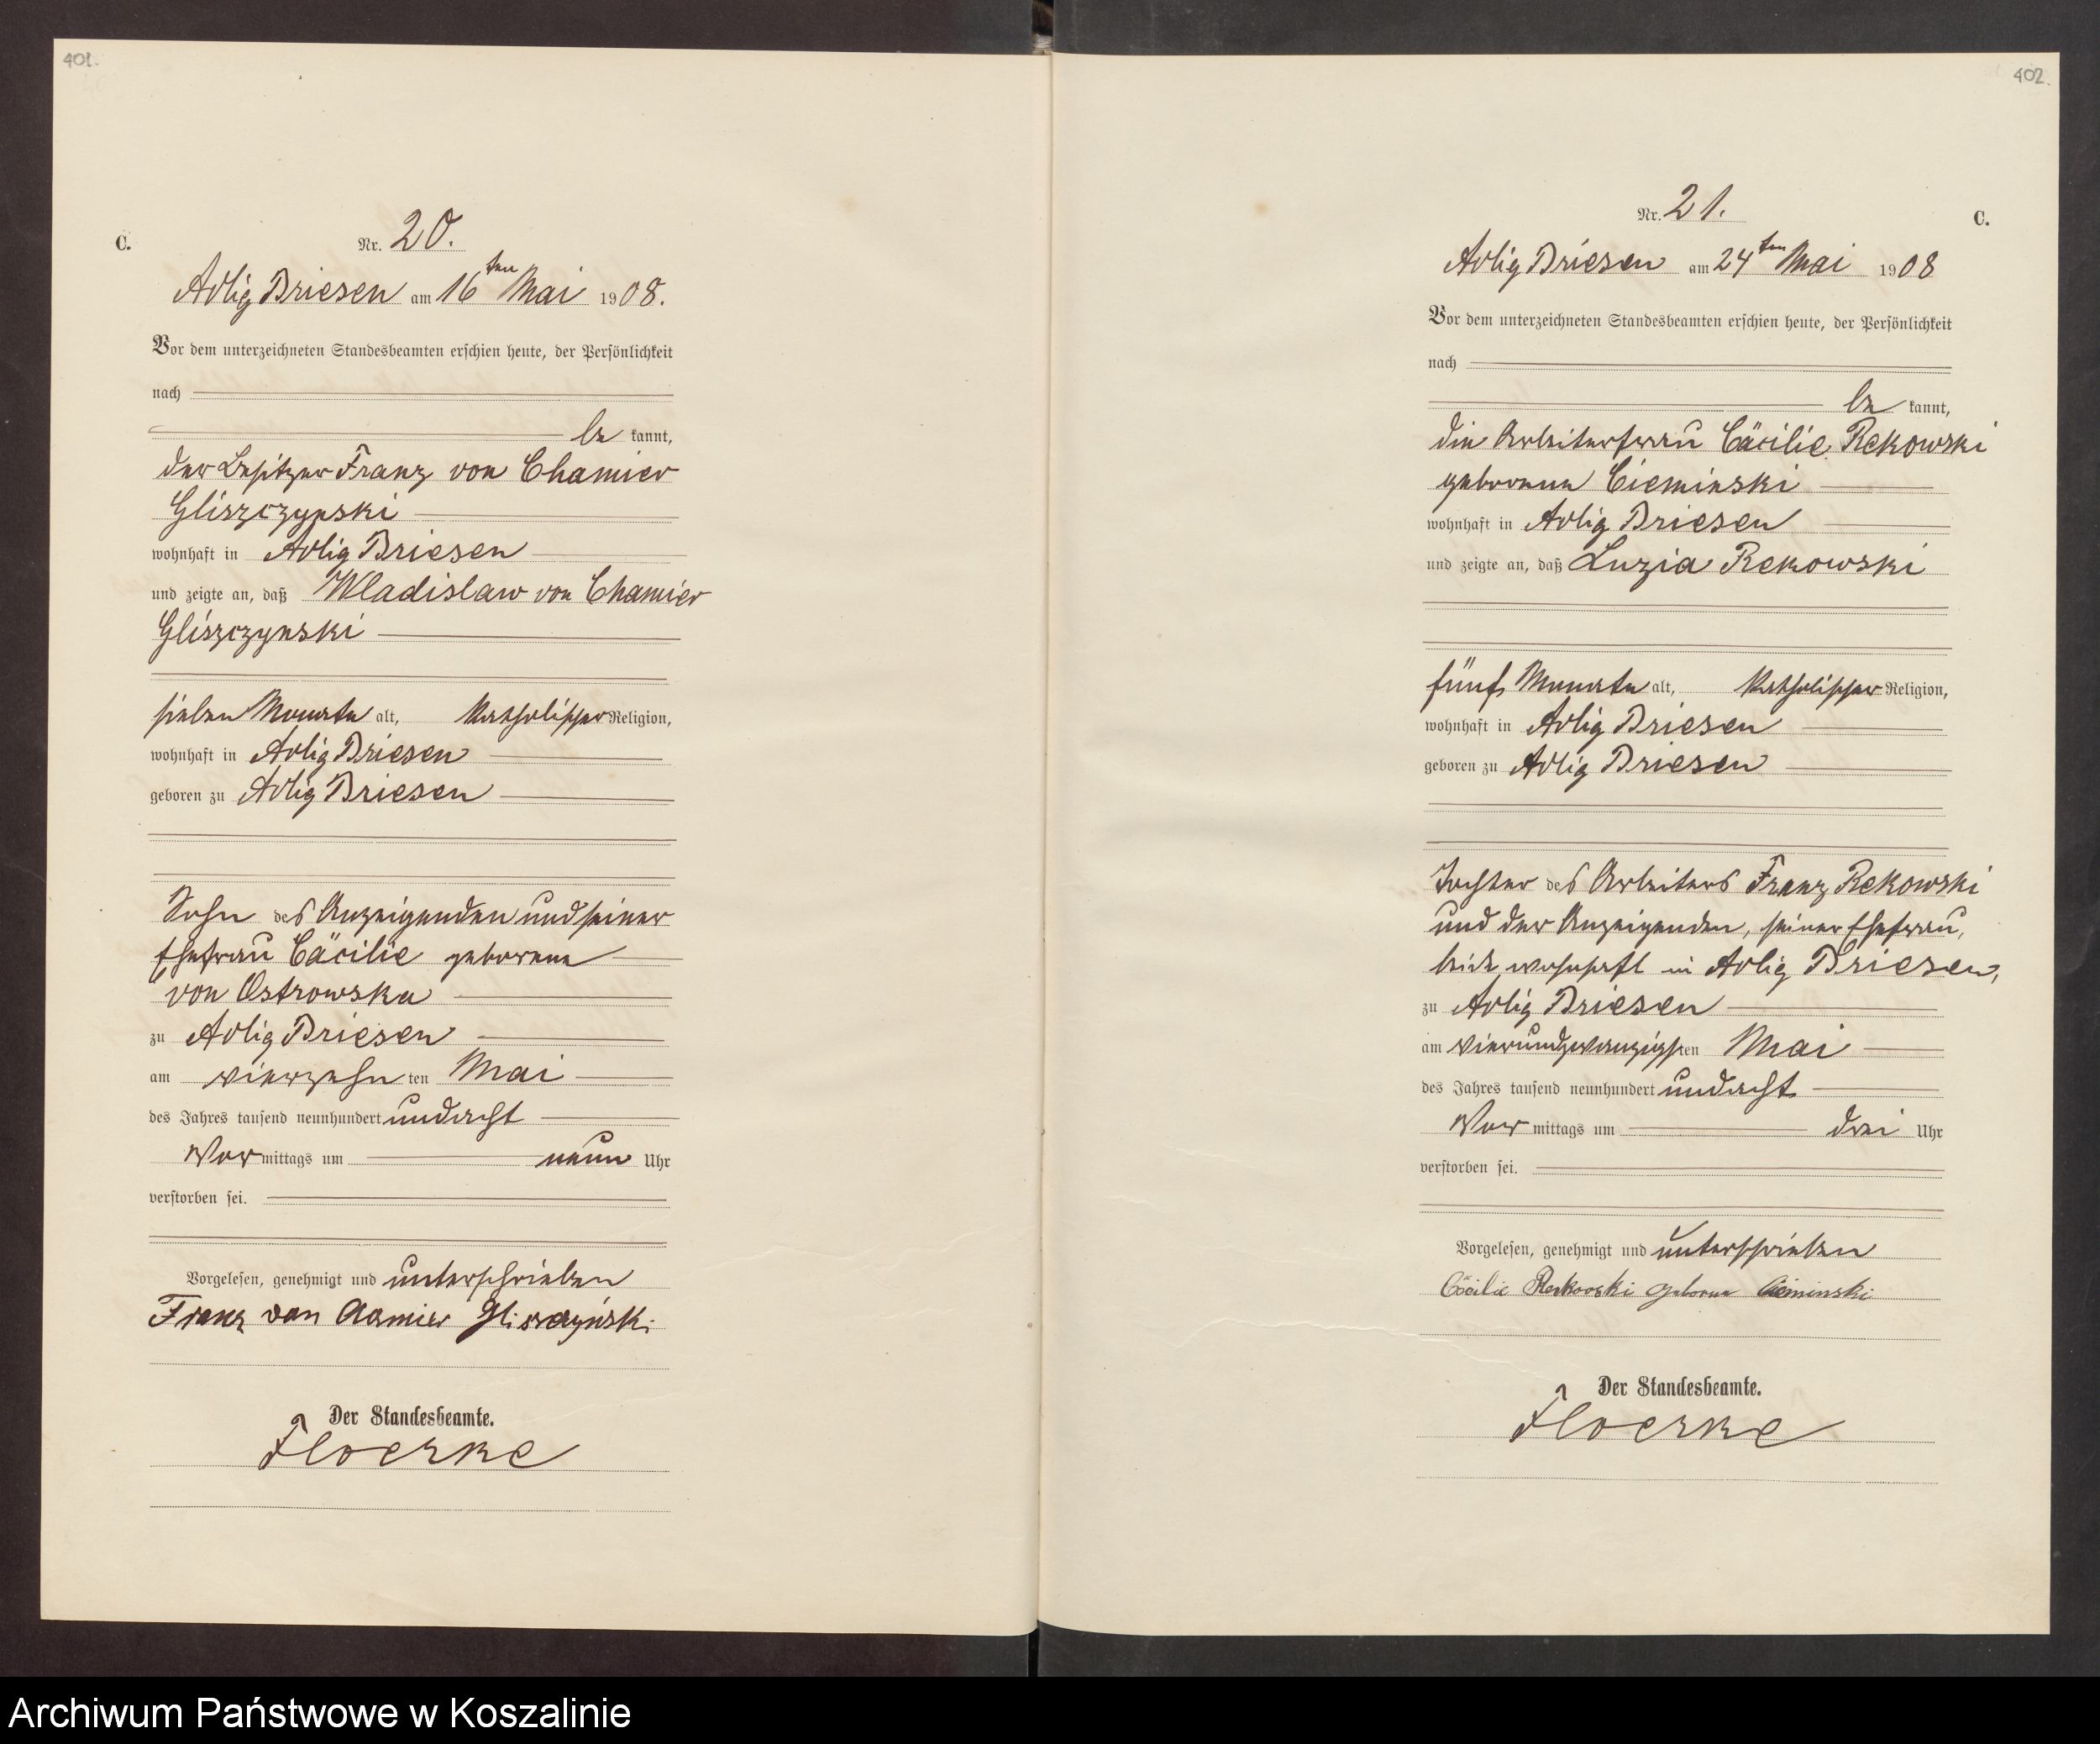 401.
C.
Nr. 20.
Adlig Briesen am 16ten Mai 1908.
Vor dem unterzeichneten Standesbeamten erschien heute, der Persönlichkeit
nach
be kannt,
der Besitzer Franz von Chamier
Gliszczynski
wohnhaft in Adlig Briesen
und zeigte an, daß Wladislaw von Chamier
Gliszczynski
sieben Monate alt, katholischer Religion,
wohnhaft in Adlig Briesen
geboren zu Adlig Briesen
Sohn des Anzeigenden und seiner
Ehefrau Cäcilie geborene
von Ostrowska
zu Adlig Briesen
am vierzehn ten Mai
des Jahres tausend neunhundert undacht
Vor mittags um neun Uhr
verstorben sei.
Vorgelesen, genehmigt und unterschrieben
Franz von Chamier Gliszczyński
Der Standesbeamte.
Floerke
402.
C.
Nr. 21.
Adlig Briesen am 24ten Mai 1908
Vor dem unterzeichneten Standesbeamten erschien heute, der Persönlichkeit
nach
be kannt,
die Arbeiterfrau Cäcilie Rekowski
geborene Cieminski
wohnhaft in Adlig Briesen
und zeigte an, daß Luzia Rekowski
fünf Monate alt, katholischer Religion,
wohnhaft in Adlig Briesen
geboren zu Adlig Briesen
Tochter des Arbeiters Franz Rekowski
und der Anzeigenden, seiner Ehefrau,
beide wohnhaft in Adlig Briesen,
zu Adlig Briesen
am vierundzwanzigsten Mai
des Jahres tausend neunhundert undacht
Vor mittags um drei Uhr
verstorben sei.
Vorgelesen, genehmigt und unterschrieben
Cäcilie Rekowski geborene Cieminski
Der Standesbeamte.
Floerke
Archiwum Państwowe w Koszalinie